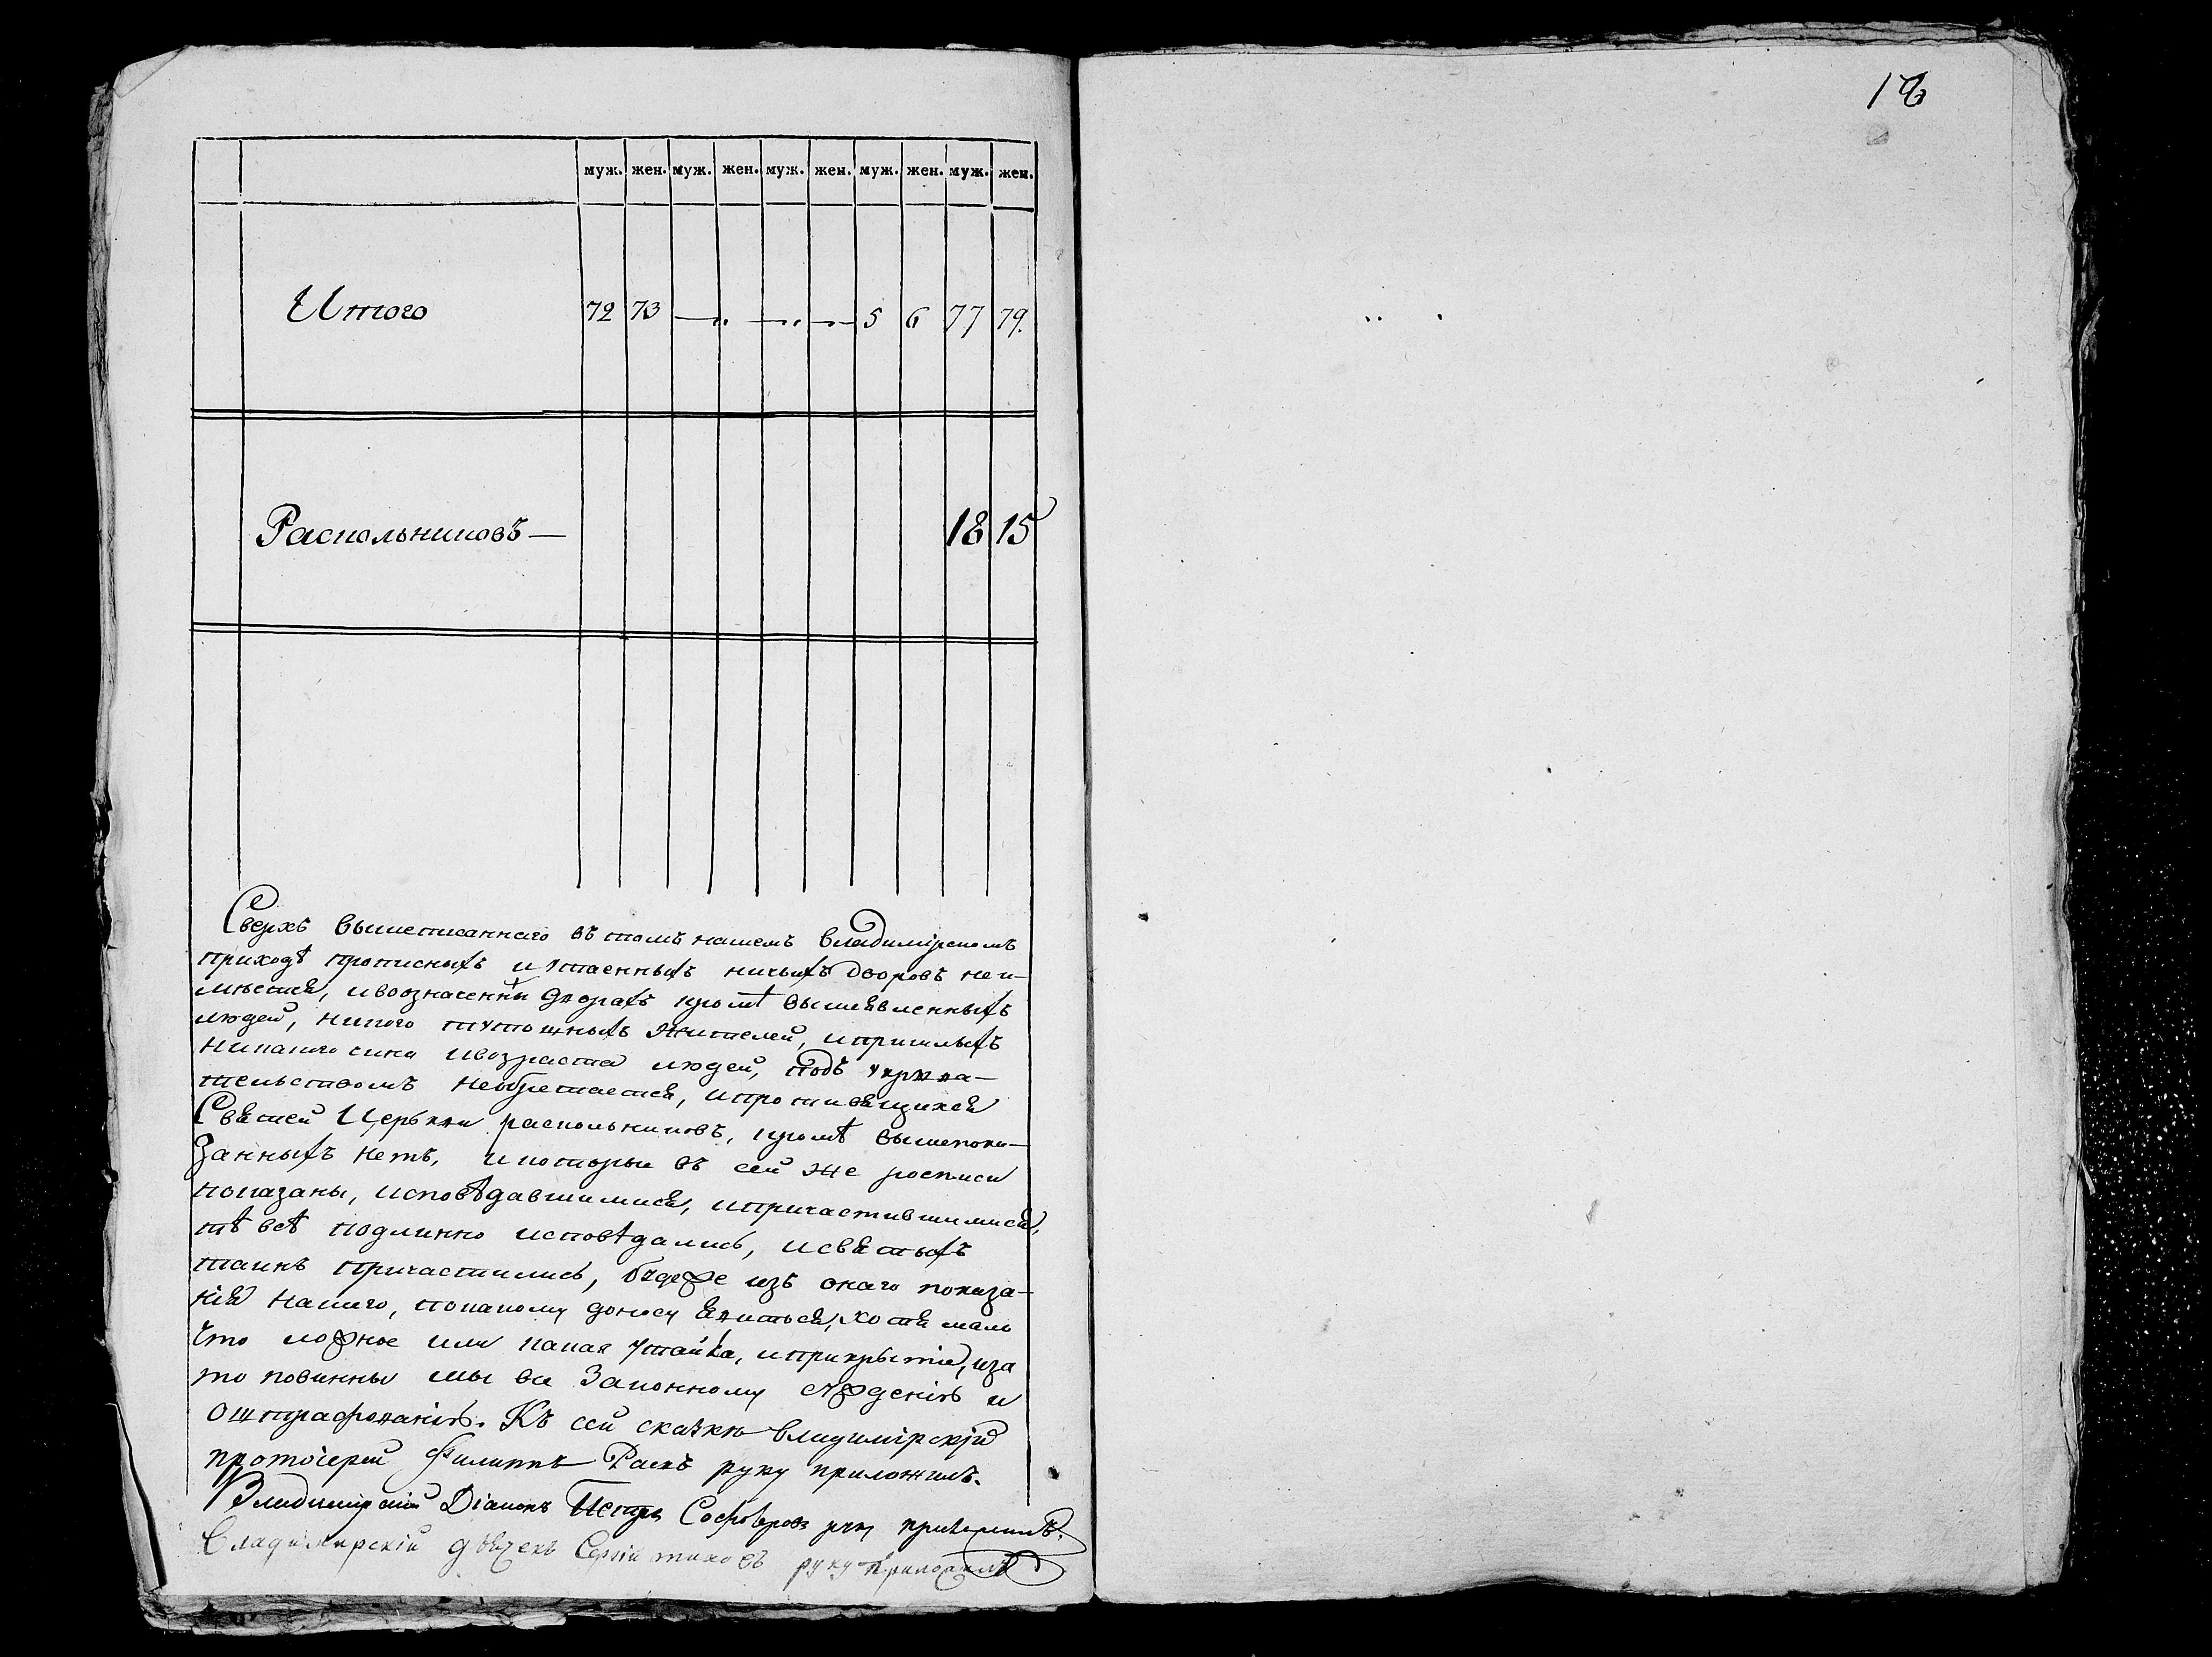 18
муж. жен. муж. жен. муж. жен. муж. жен. муж. жен.
Итого 72 73 —„ —„ —„— 5 6 77 79.
Раскольниковъ — 18 15
Сверхъ вышеписаннаго въ томъ нашемъ Владимірскомъ
приходѣ прописныхъ и утаенныхъ ничьихъ дворовъ неи-
мѣется, ивоозначенны дворахъ кромѣ вышеявленныхъ
людей, никого тутошныхъ жителей, ипришлыхъ
никакого чина ивозраста людей, подъ укрыва-
тельствомъ необретается, ипротивящихся
Святей Церькви раскольниковъ, кромѣ вышепока-
занныхъ нетъ, икоторыи въ сей же росписи
показаны, исповѣдавшимися, ипричастившимися,
тѣ всѣ подлинно исповѣдались, исвятыхъ
таинъ причастились, будеже изъ онаго показа-
нія нашего, покакому доносу явиться, хотя мало
что ложное или какая утайка, иприкрытіе, иза
то повинны мы законному сужденію и
оштрафованію. Къ сей сказкѣ Владимірскій
протоіерей Филиппъ Раевъ руку приложилъ.
Владимірскій Діаконъ Петръ руку приложилъ.
Владимирскій дьячекъ Сергій Тиховъ руку приложилъ